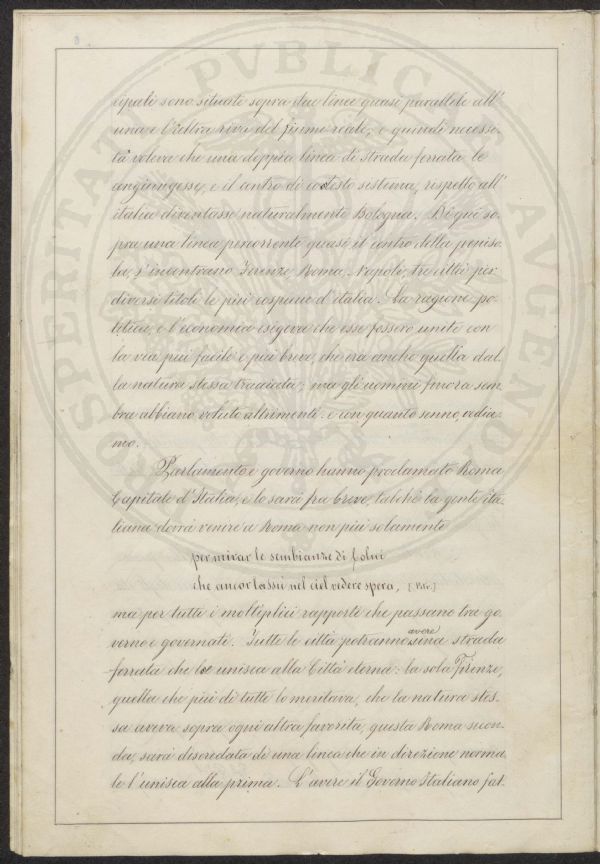 8
cipali sono situate sopra due linee quasi parallele all'
una e l'altra riva del fiume reale, e quindi necessi-
tà voleva che una doppia linea di strada ferrata le
congiungesse, e il centro di codesto sistema, rispetto all'
italia diventasse naturalmente Bologna. Di qui so-
pra una linea percorrente quasi il centro della peniso-
la, s'incontrano Firenze, Roma, Napoli, tre città per
diversi titoli le più cospicue d'italia. La ragione po-
litica, e l'economia esigeva che esse fossero unite con
la via più facile e più breve, che era anche quella dal-
la natura stessa tracciata; ma gli uomini finora sem-
bra abbiano voluto altrimenti. e con quanto senno, vedia-
mo.
Parlamento e governo hanno proclamato Roma
Capitale d'Italia, e lo sarà fra breve, talchè la gente ita-
liana dovrà venire a Roma non più solamente
per mirar le sembianze di Colui
che ancor lassù nel ciel vedere spera,
ma per tutti i molteplici rapporti che passano tra go-
verno e governati. Tutte le città potranno avere una strada
ferrata che le unisca alla Città eterna: la sola Firenze,
quella che più di tutte lo meritava, che la natura stes-
sa aveva sopra ogni altra favorita, questa Roma secon-
da, sarà diseredata di una linea che in direzione norma-
le l'unisca alla prima. L'avere il Governo Italiano fat-
PROSPERITATI PVBLICAE AVGENDAE